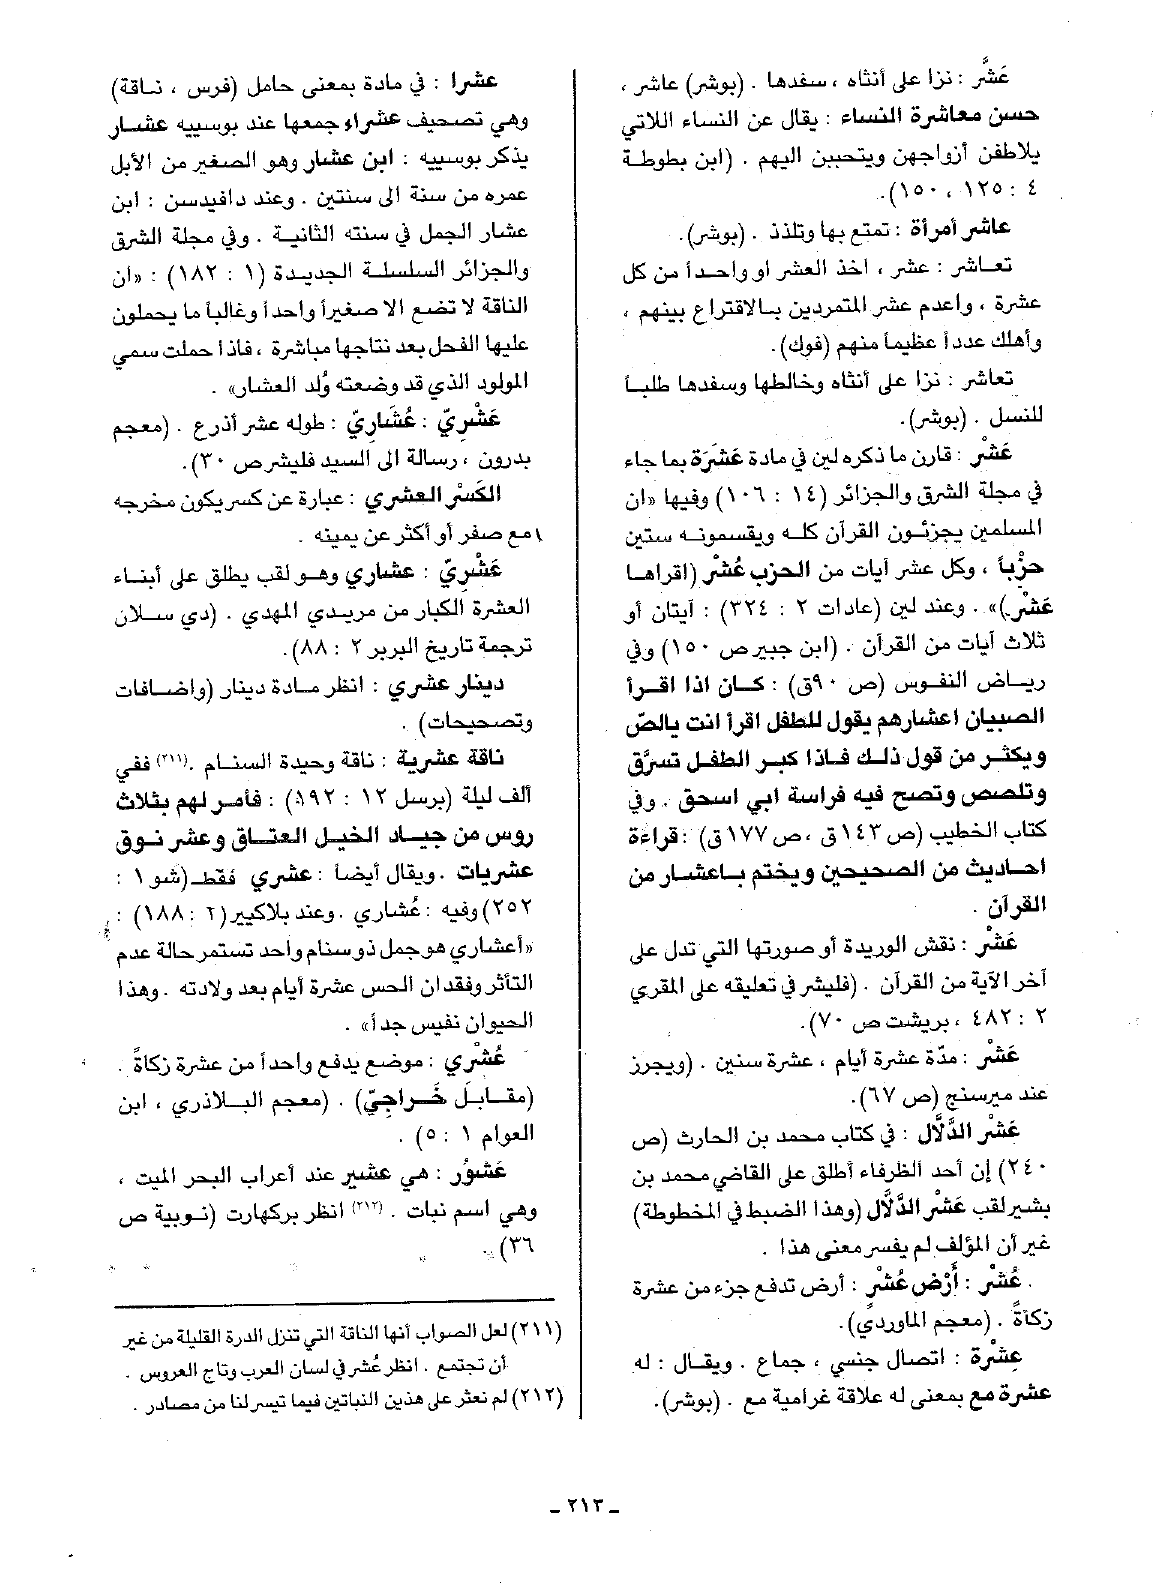 عَشَّر : نزا على أنثاه ، سفدها . (بوشر) عاشر ،
حسن معاشرة النساء : يقال عن النساء اللاتي
يلاطفن أزواجهن ويتحببن اليهم . (ابن بطوطة
٤ : ١٢٥ ، ١٥٠).
عاشر أمرأة : تمتع بها وتلذذ . (بوشر).
تعاشر : عشر ، اخذ العشر او واحداً من كل
عشرة ، واعدم عشر المتمردين بالاقتراع بينهم ،
وأهلك عدداً عظيما منهم (فوك).
تعاشر : نزا على أنثاه وخالطها وسفدها طلباً
للنسل . (بوشر).
عَشْر : قارن ما ذكره لين في مادة عَشَرَة بما جاء
في مجلة الشرق والجزائر (١٤ : ١٠٦) وفيها «ان
المسلمين يجزئون القرآن كله ويقسمونه ستين
حزْباً ، وكل عشر أيات من الحزب عُشْر (اقراها
عَشْر.)» . وعند لين (عادات ٢ : ٣٢٤) : آيتان أو
ثلاث أيات من القرآن . (ابن جبير ص ١٥٠) وفي
رياض النفوس (ص ٩٠ق) : كان اذا اقرأ
الصبيان اعشارهم يقول للطفل اقرأ انت يالصّ
ويكثر من قول ذلك فاذا كبر الطفل تسرَّق
وتلصص وتصح فيه فراسة ابي اسحق . وفي
كتاب الخطيب (ص ١٤٣ق ، ص ١٧٧ق) : قراءة
احاديث من الصحيحين ويختم باعشار من
القرآن .
عَشْر : نقش الوريدة أو صورتها التي تدل على
آخر الآية من القرآن . (فليشر في تعليقه على المقري
٢ : ٤٨٢ ، بريشت ص ٧٠).
عَشْر : مدّة عشرة أيام ، عشرة سنين . (ويجرز
عند ميرسنج (ص ٦٧).
عَشْر الدَّلاَّل : في كتاب محمد بن الحارث (ص
٢٤٠) إن أحد الظرفاء أطلق على القاضي محمد بن
بشير لقب عَشْر الدَّلاَّل (وهذا الضبط في المخطوطة)
غير أن المؤلف لم يفسر معنى هذا .
. عُشْر : أَرْض عُشْر : أرض تدفع جزء من عشرة
زكاةً . (معجم الماوردي).
عِشْرة : اتصال جنسي ، جماع . ويقال : له
عشرة مع بمعنى له علاقة غرامية مع . (بوشر).
عشرا : في مادة بمعنى حامل (فرس ، ناقة)
وهي تصحيف عشراء جمعها عند بوسييه عشار
يذكر بوسييه : ابن عشار وهو الصغير من الأبل
عمره من سنة الى سنتين . وعند دافيدسن : ابن
عشار الجمل في سنته الثانية . وفي مجلة الشرق
والجزائر السلسلة الجديدة (١ : ١٨٢) : «ان
الناقة لا تضع الا صغيراً واحداً وغالباً ما يحملون
عليها الفحل بعد نتاجها مباشرة ، فاذا حملت سمي
المولود الذي قد وضعته وُلد العشار» .
عَشْريّ : عُشَاريّ : طوله عشر أذرع . (معجم
بدرون ، رسالة الى السيد فليشر ص ٣٠).
الكَسْر العشري : عبارة عن كسر يكون مخرجه
١ مع صفر أو أكثر عن يمينه .
عَشْريّ : عشاري وهو لقب يطلق على أبناء
العشرة الكبار من مريدي المهدي . (دي سلان
ترجمة تاريخ البربر ٢ : ٨٨).
دينار عشري : انظر مادة دينار (واضافات
وتصحيحات) .
ناقة عشرية : ناقة وحيدة السنام .(٢١١) ففي
ألف ليلة (برسل ١٢ : ١٩٢) : فأمر لهم بثلاث
روس من جياد الخيل العتاق وعشر نوق
عشريات . ويقال أيضاً : عشري فقط (شو ١ :
٢٥٢) وفيه : عُشاري . وعند بلاكيير (٢ : ١٨٨) :
«أعشاري هو جمل ذو سنام واحد تستمر حالة عدم
التأثر وفقدان الحس عشرة أيام بعد ولادته . وهذا
الحيوان نفيس جداً» .
عُشْري : موضع يدفع واحداً من عشرة زكاةً .
(مقابل خَراجيّ) . (معجم البلاذري ، ابن
العوام ١ : ٥) .
عَشوُر : هي عشير عند أعراب البحر الميت ،
وهي اسم نبات . (٢١٢) انظر بركهارت (نوبية ص
٣٦).
(٢١١) لعل الصواب أنها الناقة التي تنزل الدرة القليلة من غير
أن تجتمع . انظر عُشر في لسان العرب وتاج العروس .
(٢١٢) لم نعثر على هذين النباتين فيما تيسر لنا من مصادر .
ـ ٢١٣ ـ